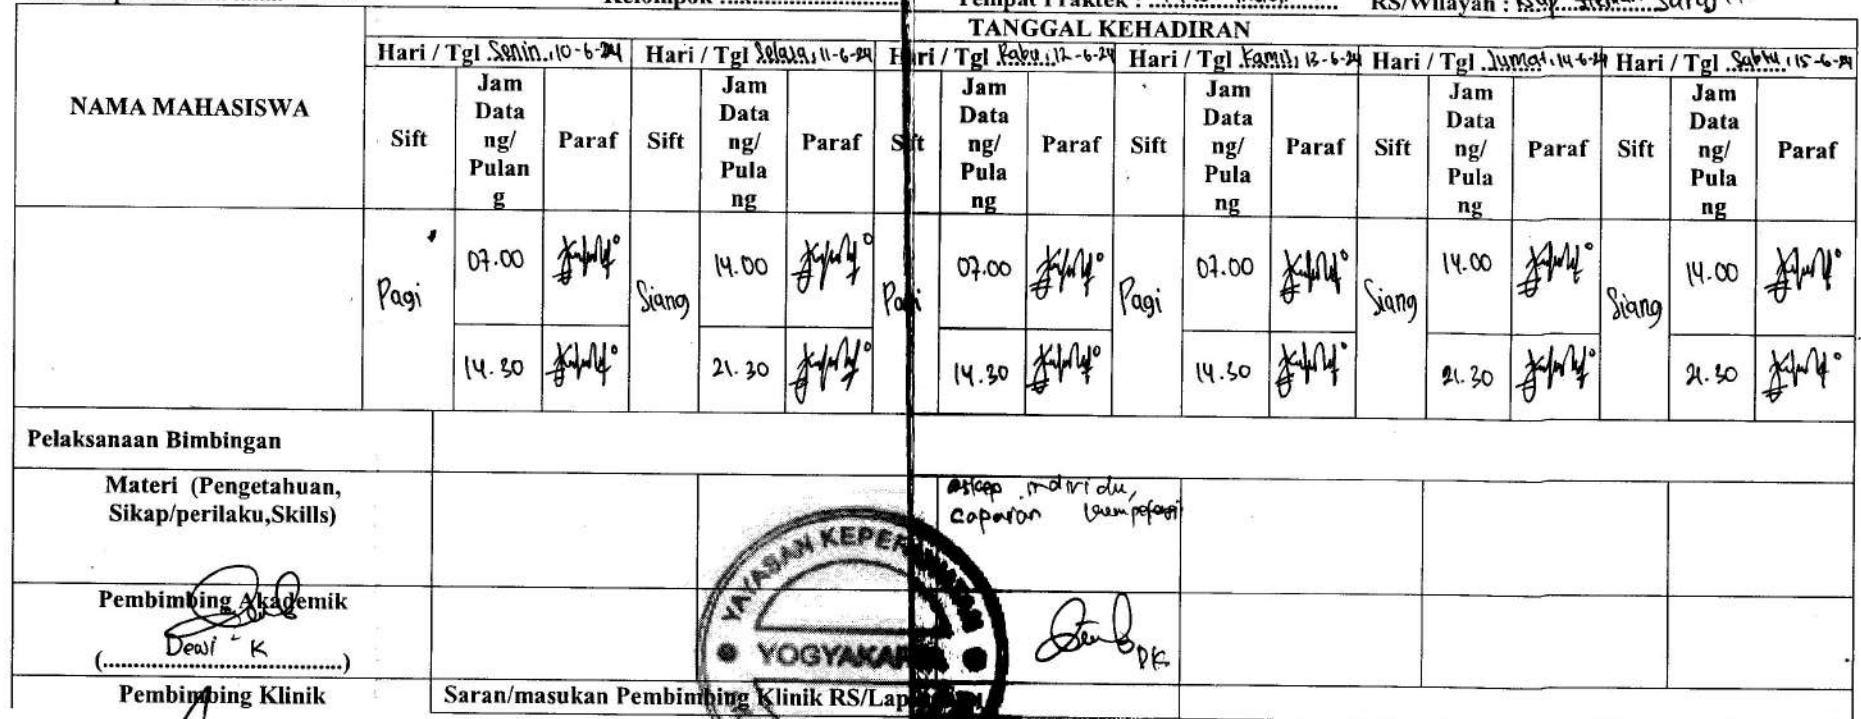 Kelompok :
Tempat Praktek : RS/Wilayah :
TANGGAL KEHADIRAN
NAMA MAHASISWA
Hari / Tgl Senin, 10-6-24 Hari / Tgl Selasa, 11-6-24 Hari / Tgl Rabu, 12-6-24 Hari / Tgl Kamis, 13-6-24 Hari / Tgl Jumat, 14-6-24 Hari / Tgl Sabtu, 15-6-24
Sift Jam Data ng/ Pulan g Paraf Sift Jam Data ng/ Pula ng Paraf Sift Jam Data ng/ Pula ng Paraf Sift Jam Data ng/ Pula ng Paraf Sift Jam Data ng/ Pula ng Paraf Sift Jam Data ng/ Pula ng Paraf
Pagi 07.00 Siang 14.00 Pagi 07.00 Pagi 07.00 Siang 14.00 Siang 14.00
14.30 21.30 14.30 14.30 21.30 21.30
Pelaksanaan Bimbingan
Materi (Pengetahuan,
Sikap/perilaku,Skills)
askep individu,
YAYASAN KEPERAWATAN
YOGYAKARTA
Pembimbing Akademik
Dewi K
(........................................)
DK
Pembimbing Klinik
Saran/masukan Pembimbing Klinik RS/Lap